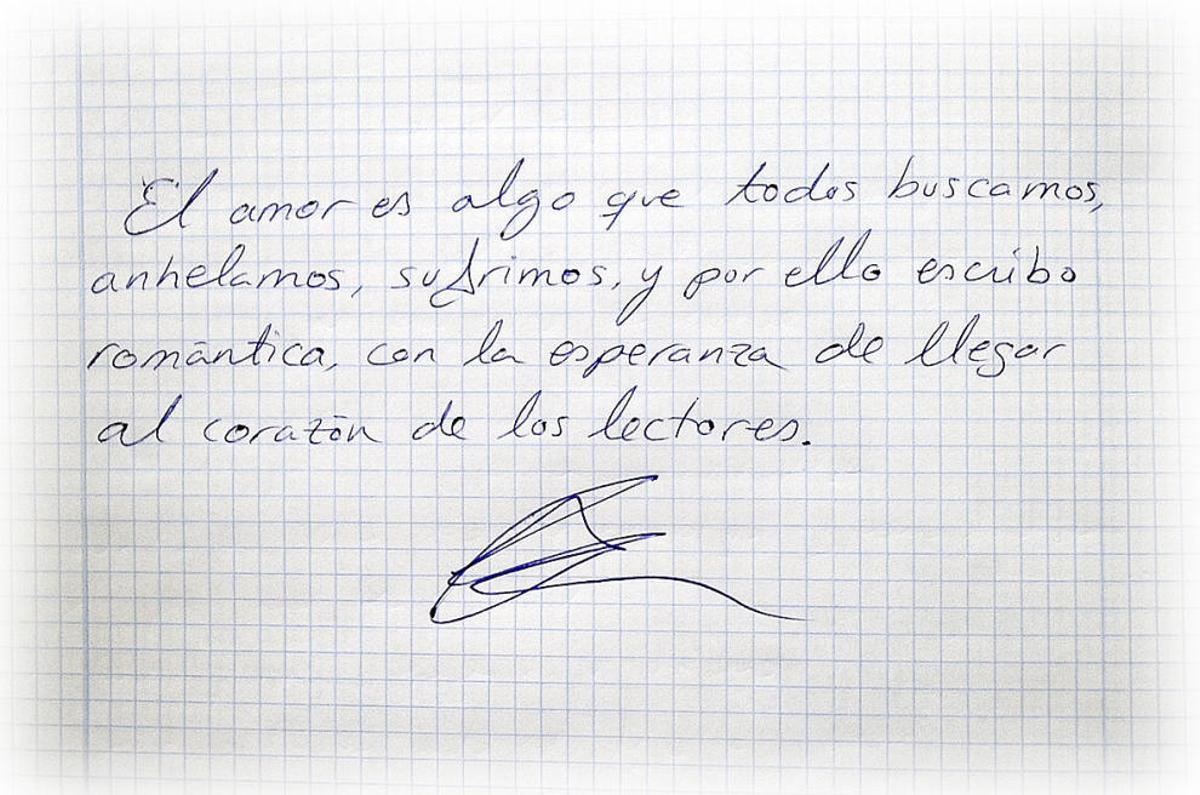 El amor es algo que todos buscamos,
anhelamos, sufrimos, y por ello escribo
romántica, con la esperanza de llegar
al corazón de los lectores.